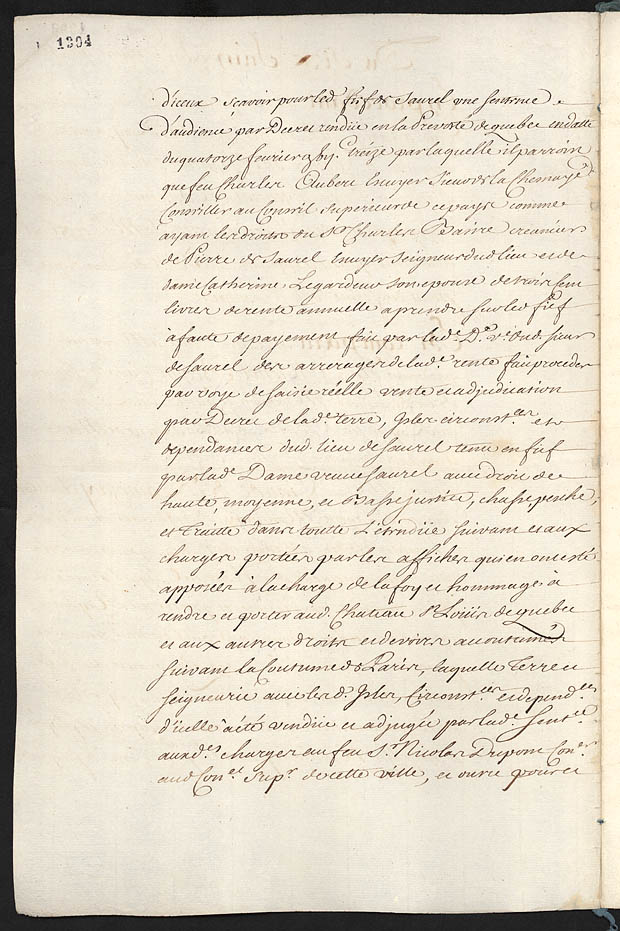 1304
d'iceux scavoir pour led. fief de Saurel une sentence
d'audience par Decret rendüe en la Prevosté de quebec en datte
du quatorze fevrier treize par laquelle il parroist
que feu Charles Aubert Ecuyer Sieur de la Chenaye
Conseiller au Conseil Superieur de ce pays comme
ayant les droits du Sr. Charles Bazire creancier
de Pierre de Saurel Ecuyer Seigneur dud lieu et de
dame Catherine Legardeur son epouse de trois cent
livres de rente annuelle a prendre sur led fief
à faute de payement fait par lade. De. ve. dud. sieur
de Saurel des arrerages de lade. rente fait proceder
par voye de saisie réelle vente et adjudication
par Decret de lade. terre, Isles circonst.ces et
dependances dud. lieu de Saurel tenu en fief
par lade. Dame veuve Saurel avec droit de
haute, moyenne, et Basse justice, chasse, peche,
et Traitte dans toute l'étendüe suivant et aux
charges portées par les affiches qui en ont esté
apposées à la charge de la foy et hommage à
rendre et porter aud. Chateau St. Loüis de quebec
et aux autres droits et devoirs accoutumés
suivant la Coutume de Paris, laquelle Terre et
Seigneurie avec lesd. Isles, Circonst.ces et depend.ces
d'icelle a été vendüe et adjugée par lade. Sent.ce
auxd.es charges au feu Sr. Nicolas Dupont Con.er
aud Con.el Sup.r de cette ville, et ouvré pour et